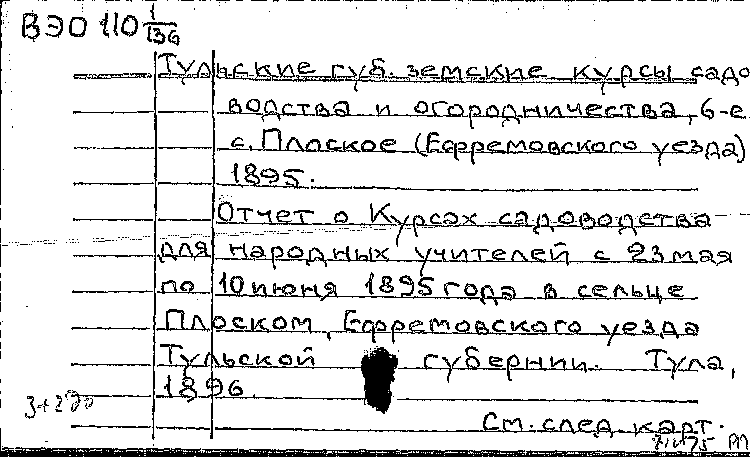 ВЭО 110 1/136
Тульские губ. земские курсы садо
водства и огородничества, 6-е
с. Плоское (Ефремовского уезда)
1895.
Отчет о Курсах садоводства
для народных учителей с 23 мая
по 10 июня 1895 года в сельце
Плоском, Ефремовского уезда
Тульской губернии. Тула,
1896.
См. след. карт.